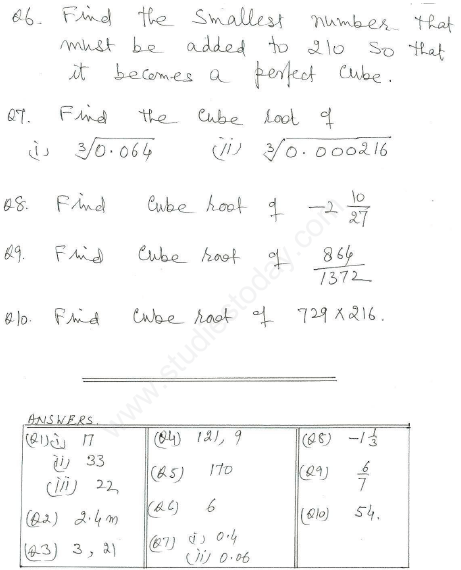 Q6. Find the smallest number that
must be added to 210 so that
it becomes a perfect cube.
Q7. Find the cube root of
i) ∛0.064 (ii) ∛0.000216
Q8. Find cube root of -2 10/27
Q9. Find cube root of 864/1372
Q10. Find cube root of 729 x 216.
www.studiestoday.com
ANSWERS.
(Q1) i) 17
ii) 33
(iii) 22
(Q2) 2.4m
(Q3) 3, 21
(Q4) 121, 9
(Q5) 170
(Q6) 6
(Q7) i) 0.4
(ii) 0.06
(Q8) -1 1/3
(Q9) 6/7
(Q10) 54.